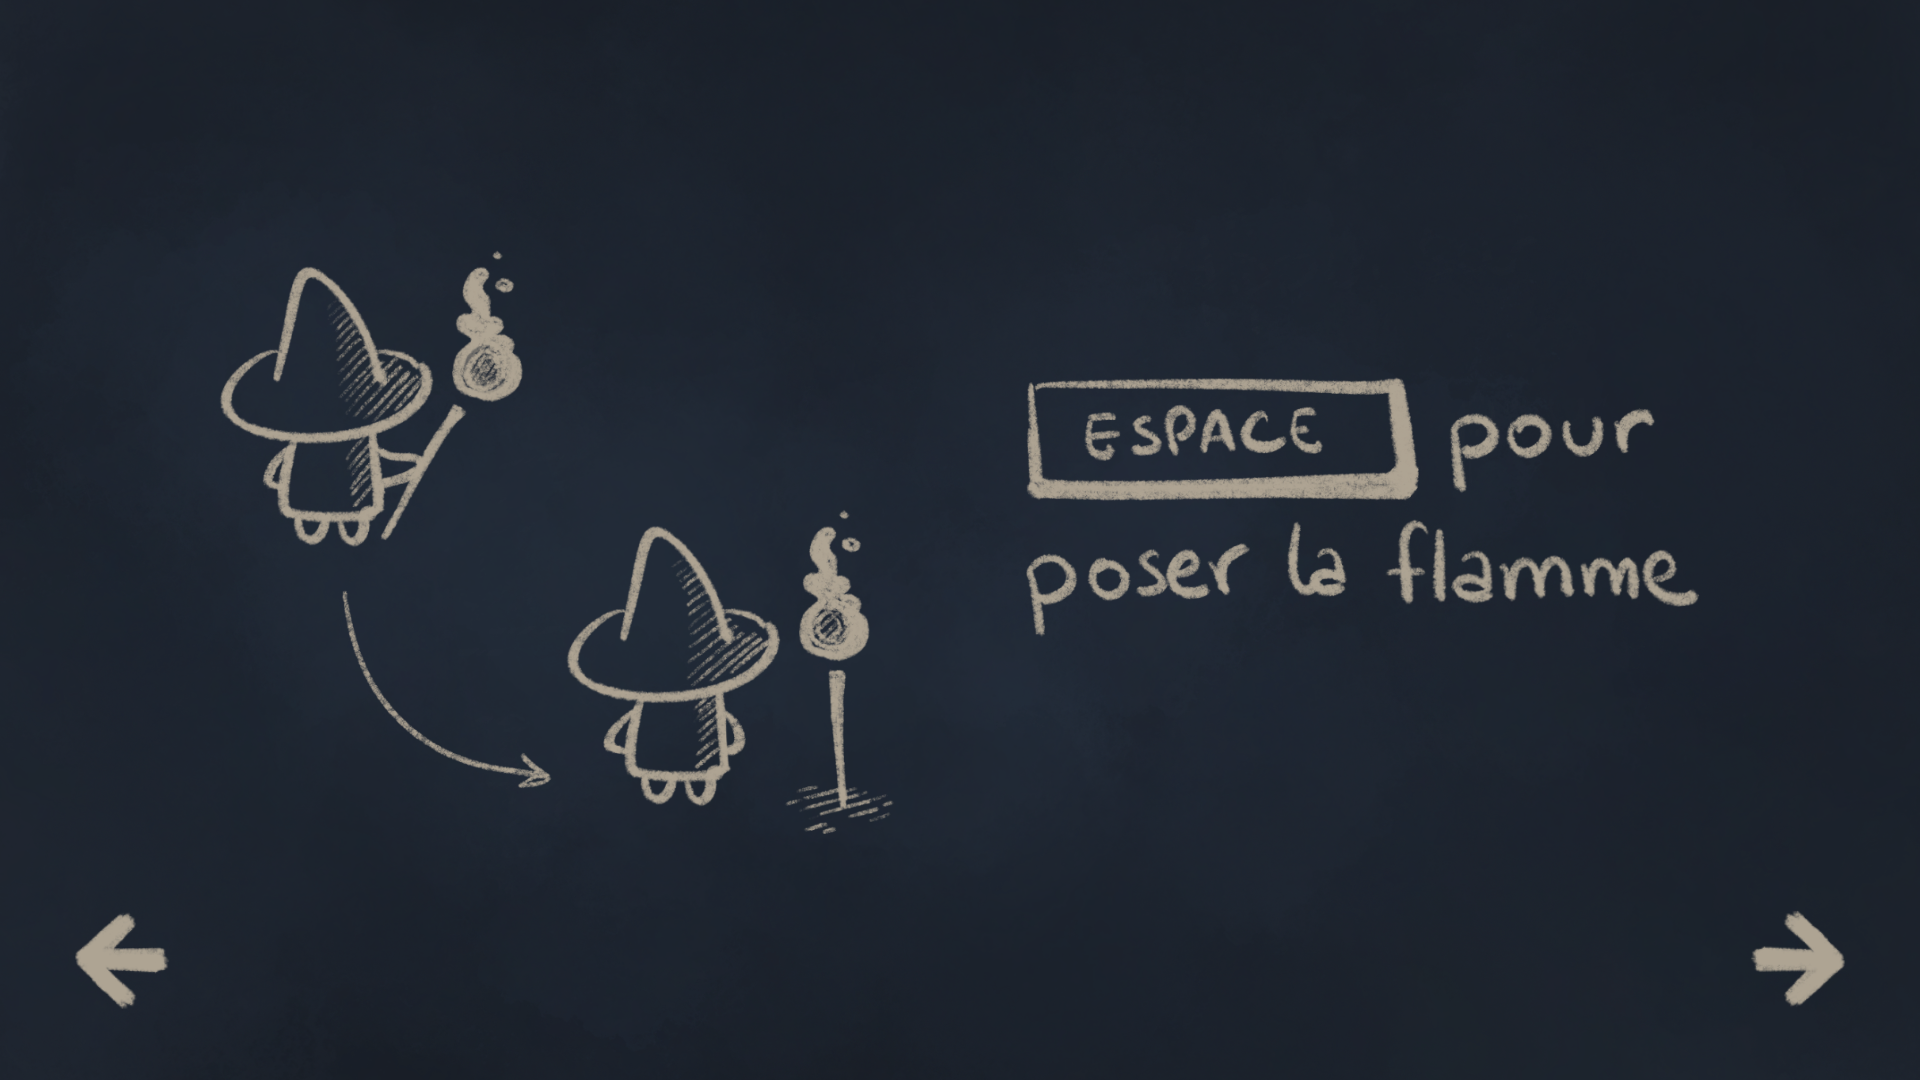 ESPACE pour
poser la flamme